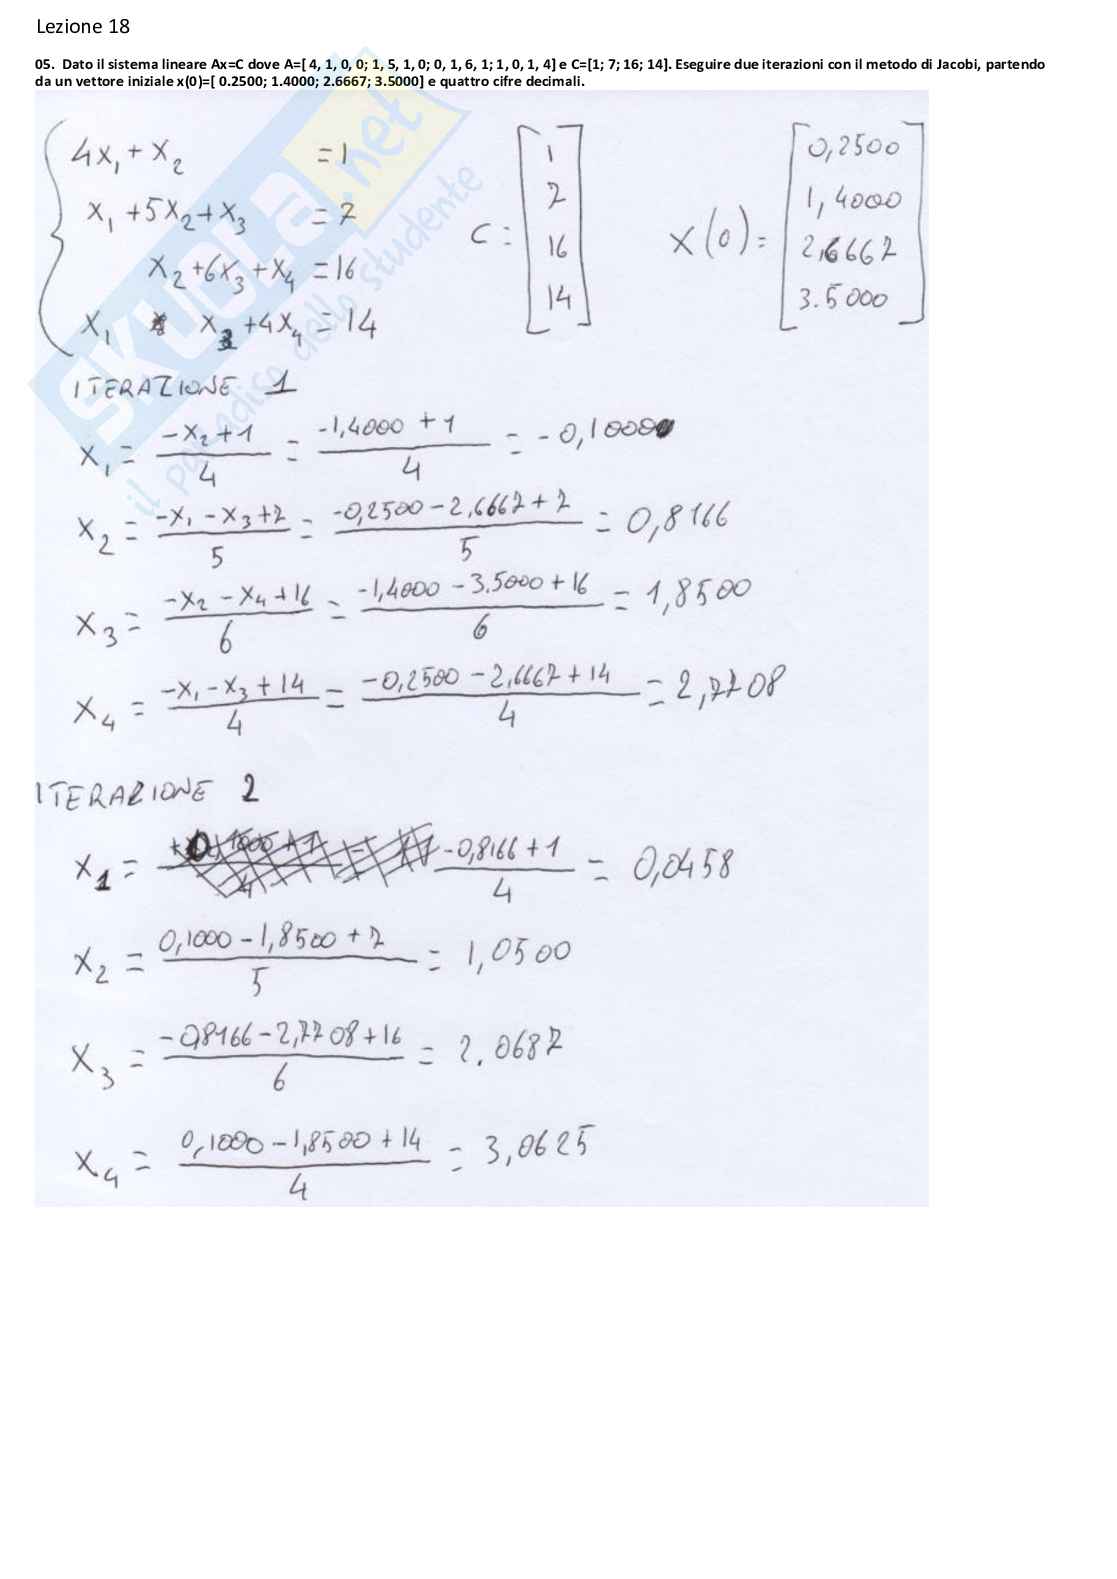 Lezione 18
05. Dato il sistema lineare Ax=C dove A=[ 4, 1, 0, 0; 1, 5, 1, 0; 0, 1, 6, 1; 1, 0, 1, 4] e C=[1; 7; 16; 14]. Eseguire due iterazioni con il metodo di Jacobi, partendo
da un vettore iniziale x(0)=[ 0.2500; 1.4000; 2.6667; 3.5000] e quattro cifre decimali.
4x₁ + x₂ = 1
x₁ + 5x₂ + x₃ = 7
x₂ + 6x₃ + x₄ = 16
x₁ x₃ + 4x₄ = 14
C = [1 7 16 14]
x(0) = [0,2500 1,4000 2,6667 3.5000]
ITERAZIONE 1
x₁ = (-x₂ + 1)/4 = (-1,4000 + 1)/4 = -0,1000
x₂ = (-x₁ - x₃ + 7)/5 = (-0,2500 - 2,6667 + 7)/5 = 0,8166
x₃ = (-x₂ - x₄ + 16)/6 = (-1,4000 - 3.5000 + 16)/6 = 1,8500
x₄ = (-x₁ - x₃ + 14)/4 = (-0,2500 - 2,6667 + 14)/4 = 2,7708
ITERAZIONE 2
x₁ = (-0,8166 + 1)/4 = 0,0458
x₂ = (0,1000 - 1,8500 + 7)/5 = 1,0500
x₃ = (-0,8166 - 2,7708 + 16)/6 = 2.0687
x₄ = (0,1000 - 1,8500 + 14)/4 = 3,0625
SKUOLA.net
il paradiso dello studente